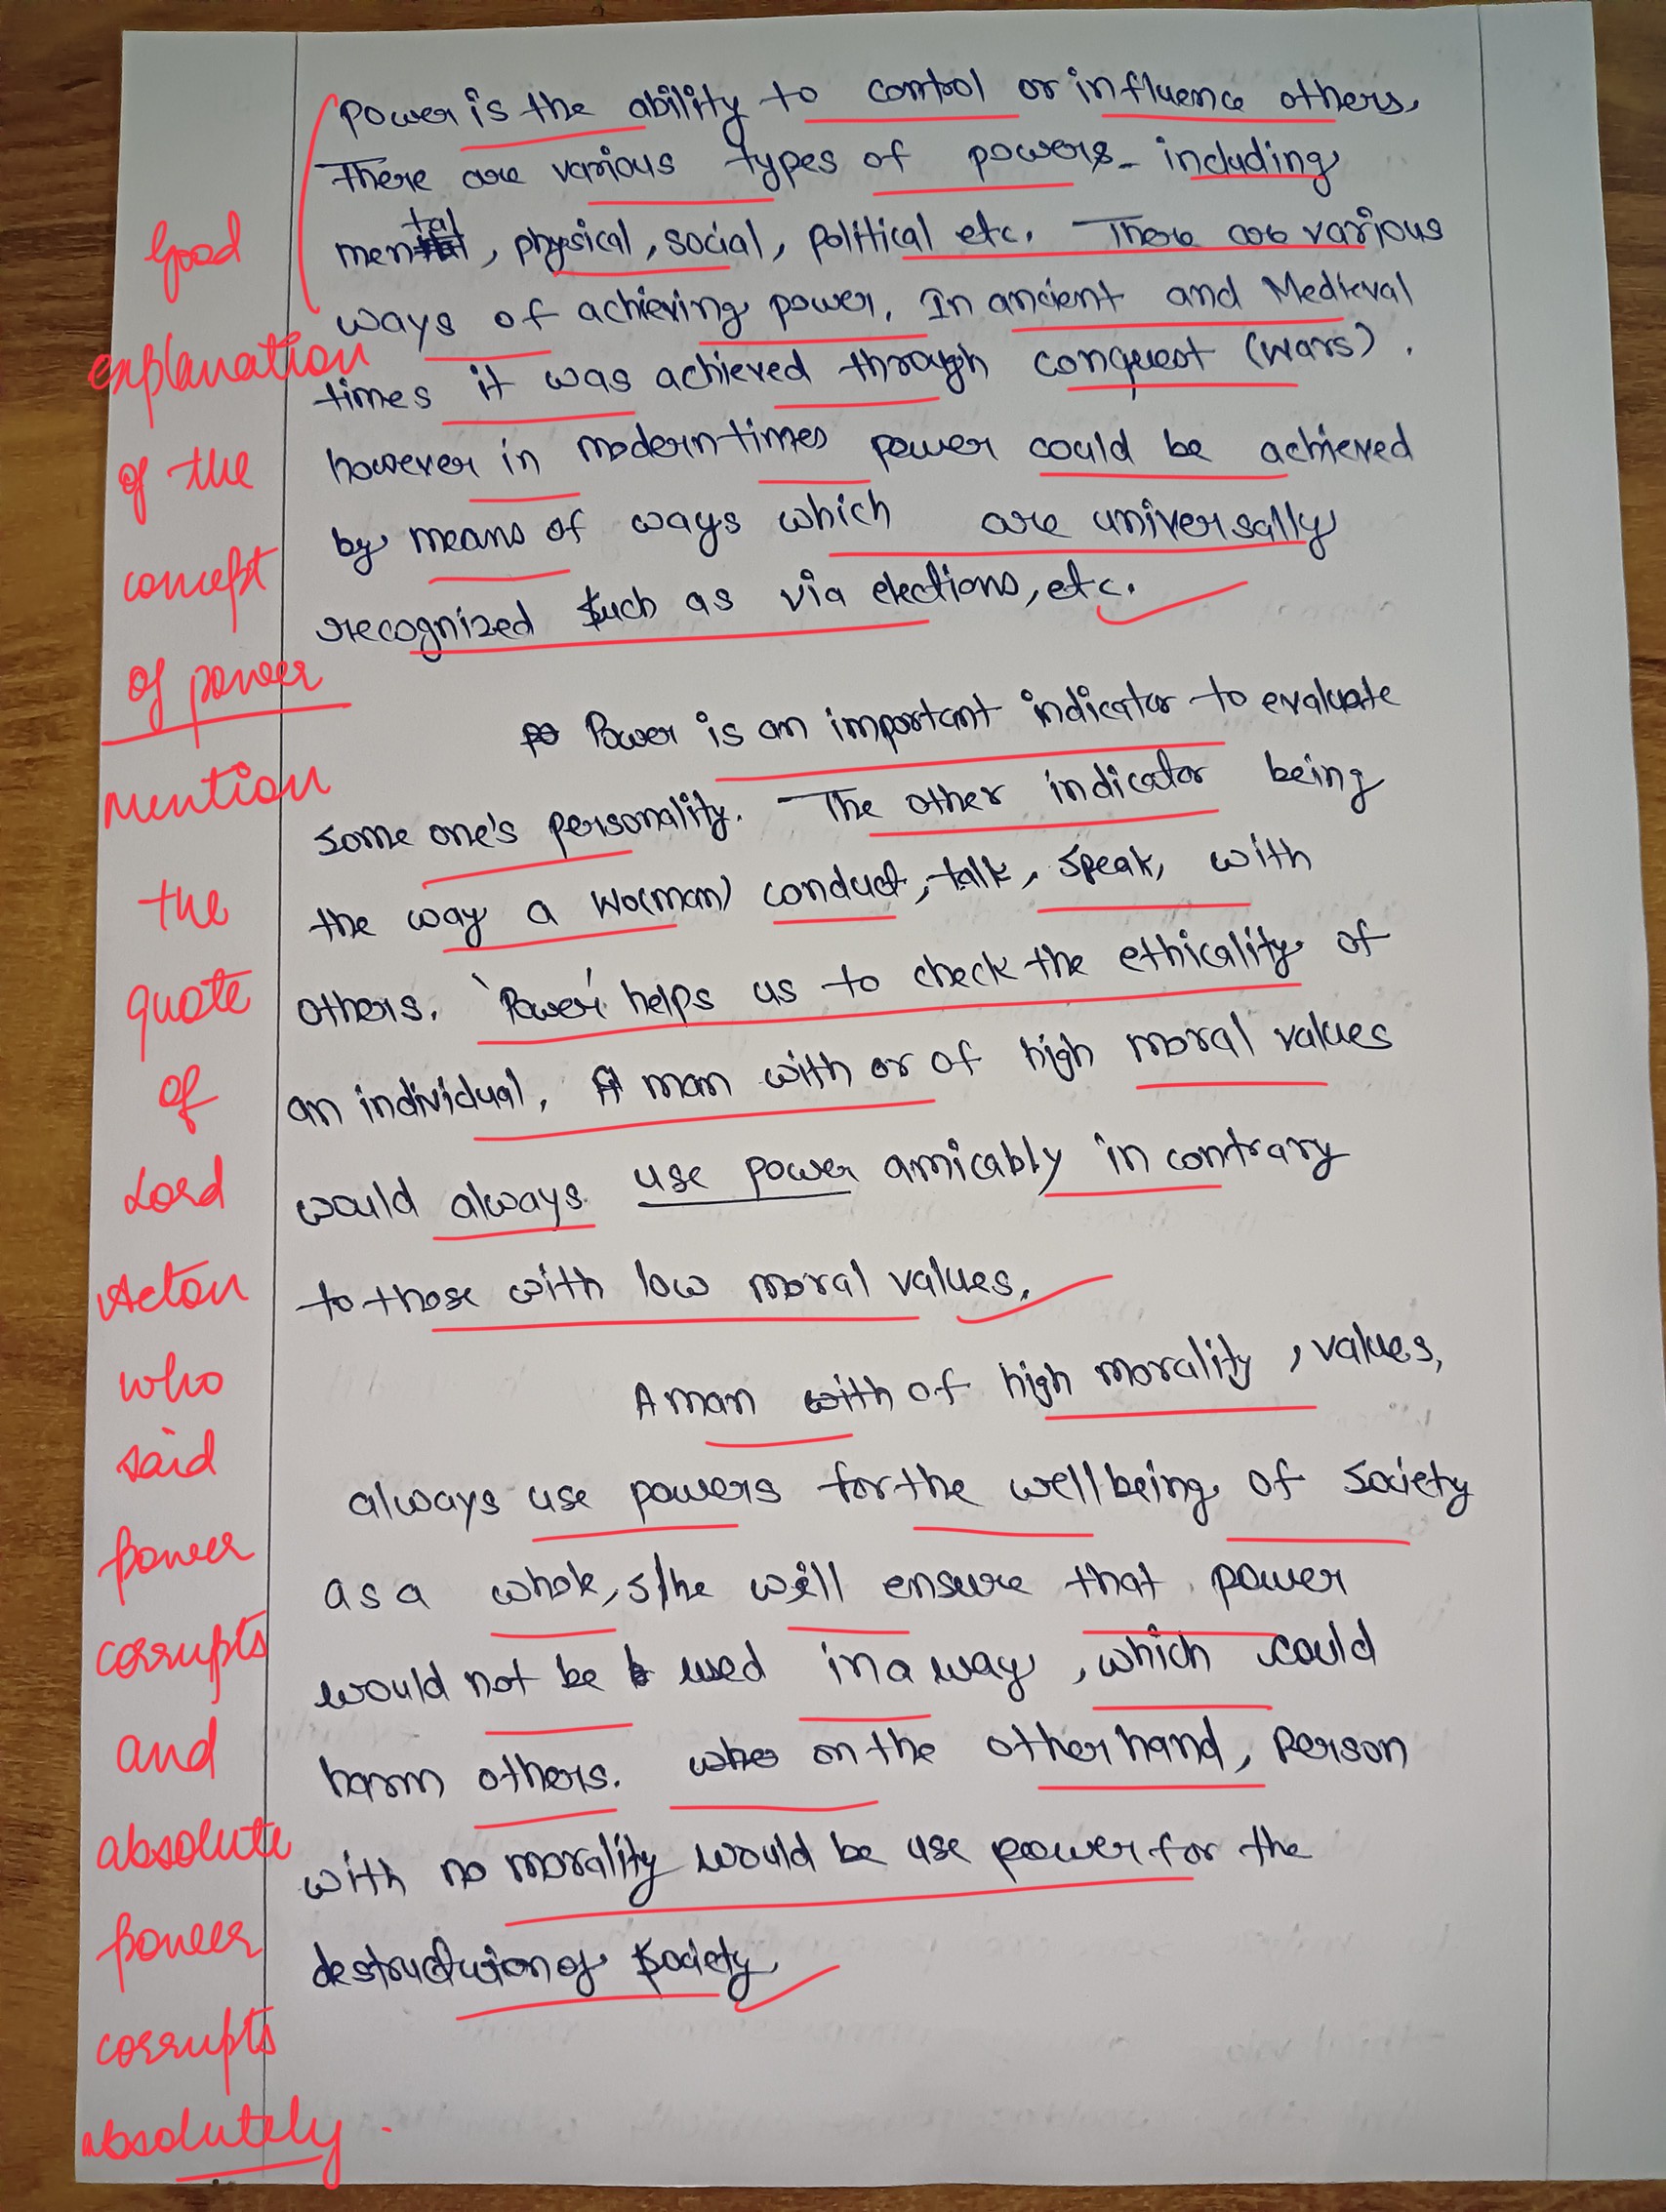 Power is the ability to control or influence others.
There are various types of powers including
mental, physical, social, political etc. There are various
ways of achieving power. In ancient and Medieval
times it was achieved through conquest (wars).
however in modern times power could be achieved
by means of ways which are universally
recognized such as via elections, etc.
Power is an important indicator to evaluate
some one's personality. The other indicator being
the way a wo(man) conduct, talk, speak, with
others. 'Power' helps us to check the ethicality of
an individual. A man with or of high moral values
would always use power amicably in contrary
to those with low moral values.
A man with of high morality, values,
always use powers for the well being of society
as a whole, s/he will ensure that power
would not be used in a way, which could
harm others. on the other hand, Person
with no morality would be use power for the
of society
Good
explanation
of the
concept
of power
Mention
the
quote
of
Lord
Acton
who
said
power
corrupts
and
absolute
power
corrupts
absolutely.